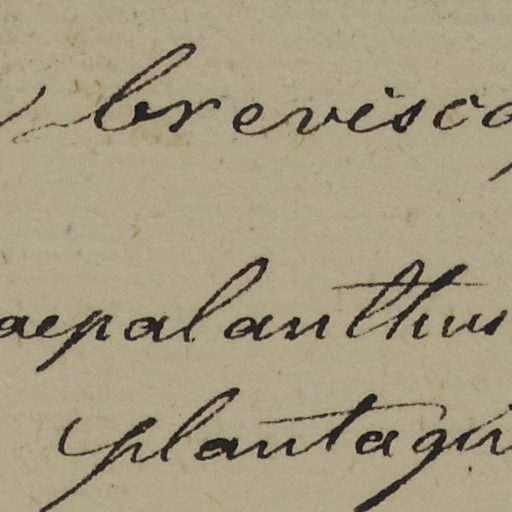 brevisca
aepalanthus
plantagin